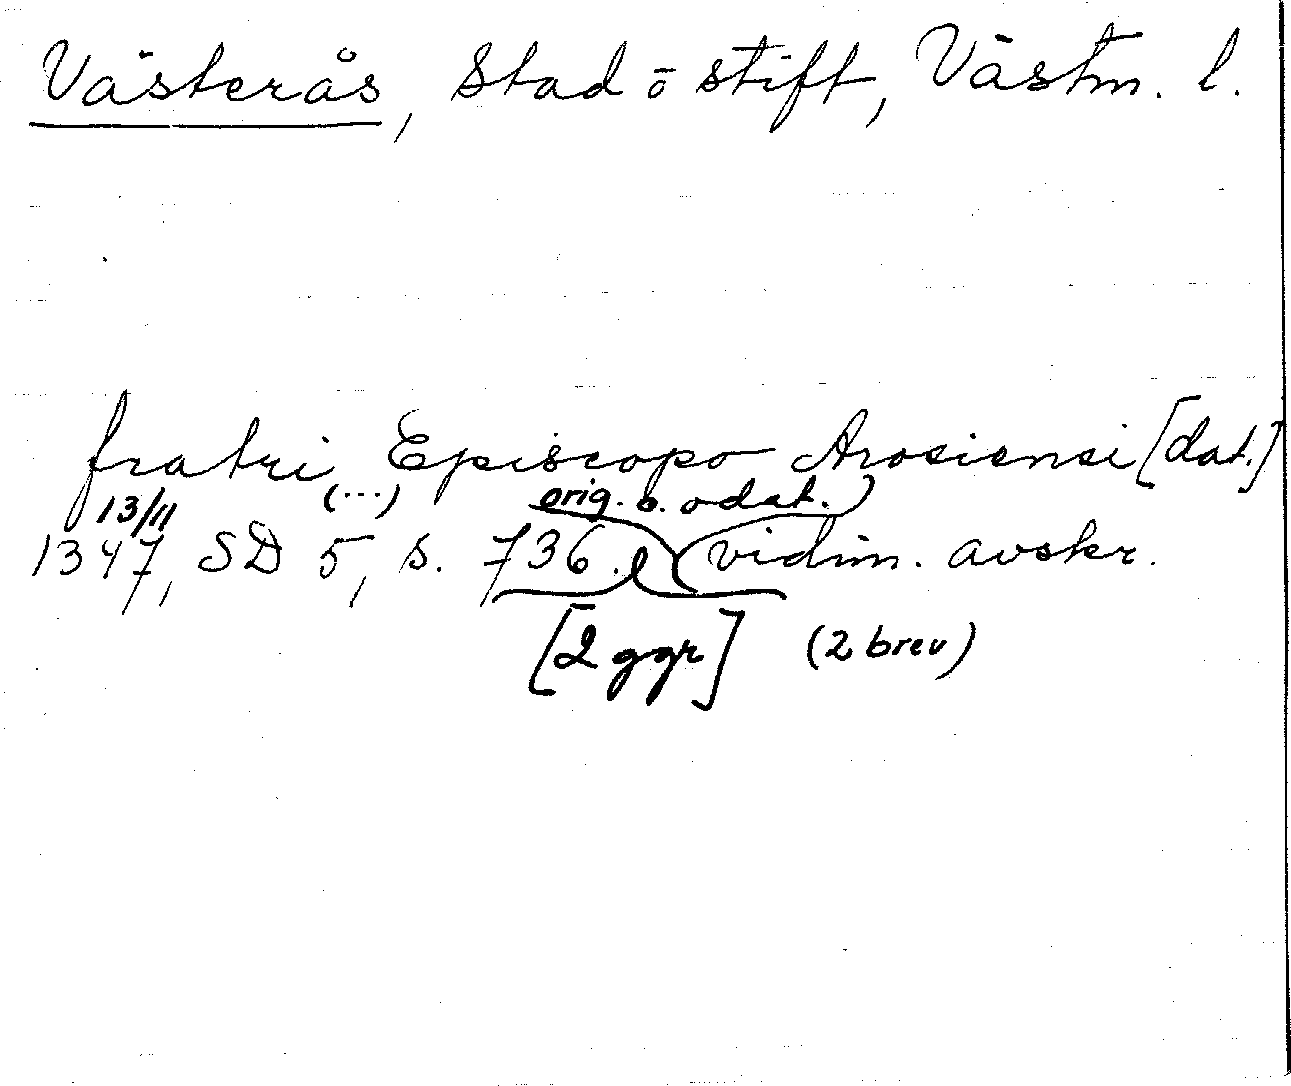 Västerås, Stad o stift, Västm. l.
fratri (...) Episcopo Arosiensi [dat.]
13/11 orig. o. odat.)
1347, SD 5, s. 736. vidim. avskr.
[2 ggr] (2 brev)